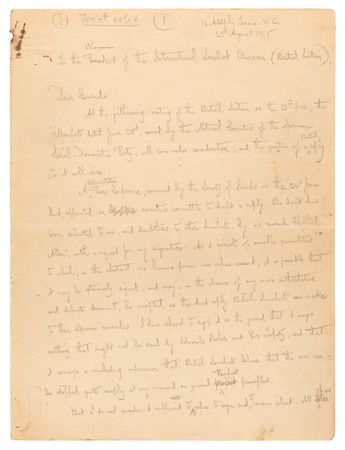 10 Adelphi Terrace W.C.
25th August 1915
Chairman
To the President of the International Socialist Bureau (British Section),
Dear Comrade
At the forthcoming meeting of the British Section on the 3rd prox., the
Manifesto dated June 23rd, issued by the National Executive of the German
Social-Democratic Party, will come under consideration, and the question of a reply
to it will arise.
A Conference, convened by the Society of Friends on the 20th
last, appointed an executive committee to draft a reply. The draft has
been submitted to me, and doubtless to other Socialists, by our comrade Clifford
Allen, with a request for my signature. As it consists of amiable generalities
to which, in the abstract, no humane person can refuse assent, it is possible that
it may be extensively signed, and may, in the absence of any more authoritative
and definite document, be accepted as the real reply British Socialists can make
to their German comrades. I have refused to sign it on the ground that it says
nothing that might not be said by and that
it conveys a misleading impression that British Socialists believe that the war can
be stopped quite simply at any moment on general Pacifist principles.
But I do not consider it sufficient to refuse to sign and remain silent. All